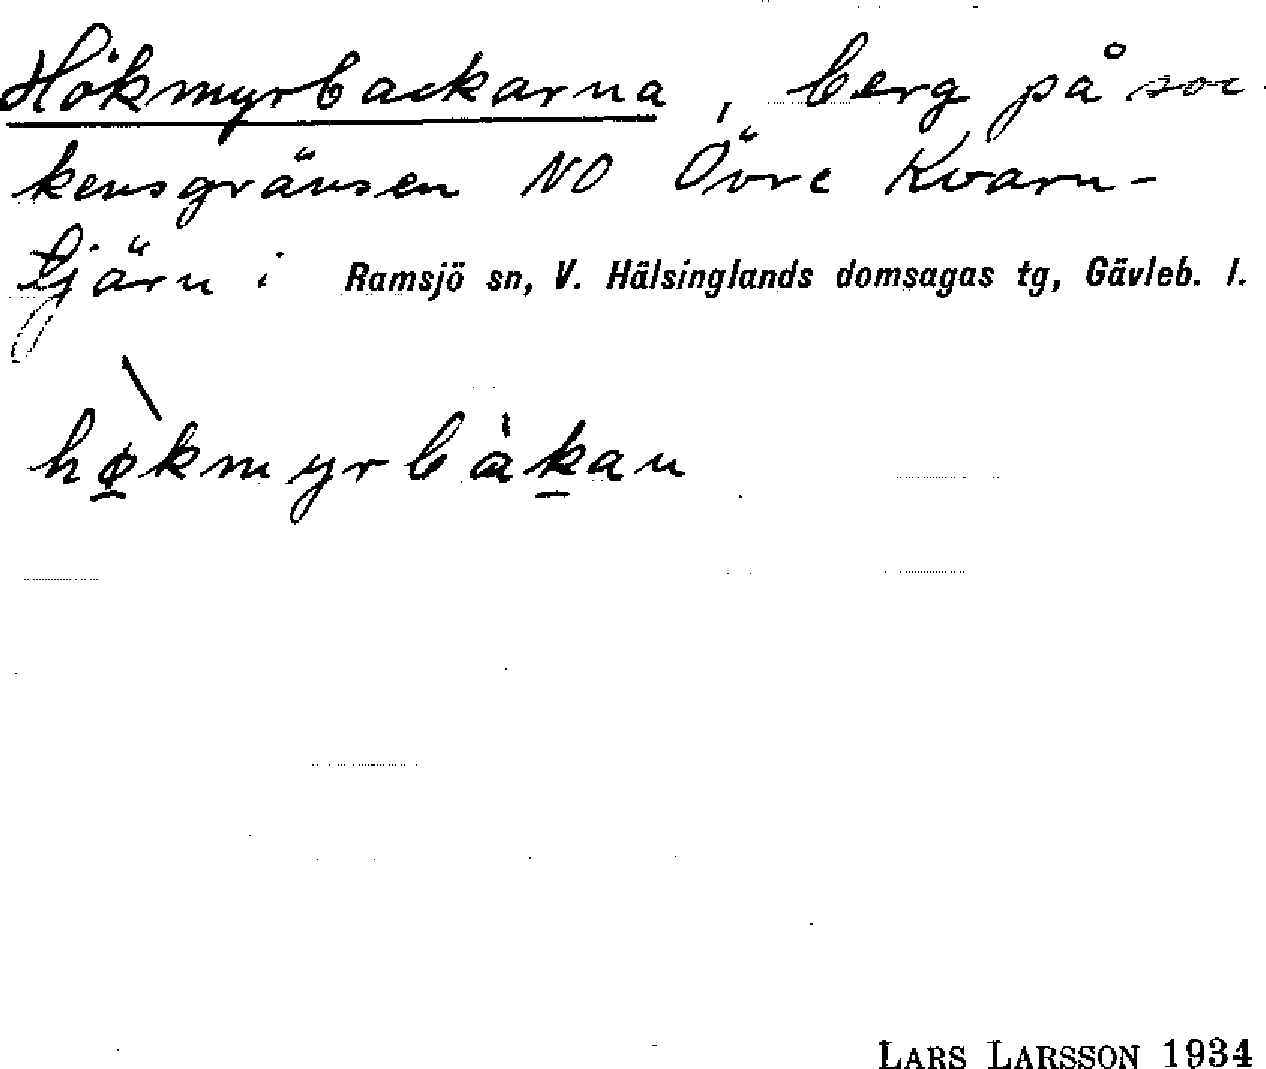 Hökmyrbackarna, berg på soc-
kensgränsen NO Övre Kvarn-
tjärn i Ramsjö sn, V. Hälsinglands domsagas tg, Gävleb. l.
hø̲̀kmyrbàk̲an
LARS LARSSON 1934